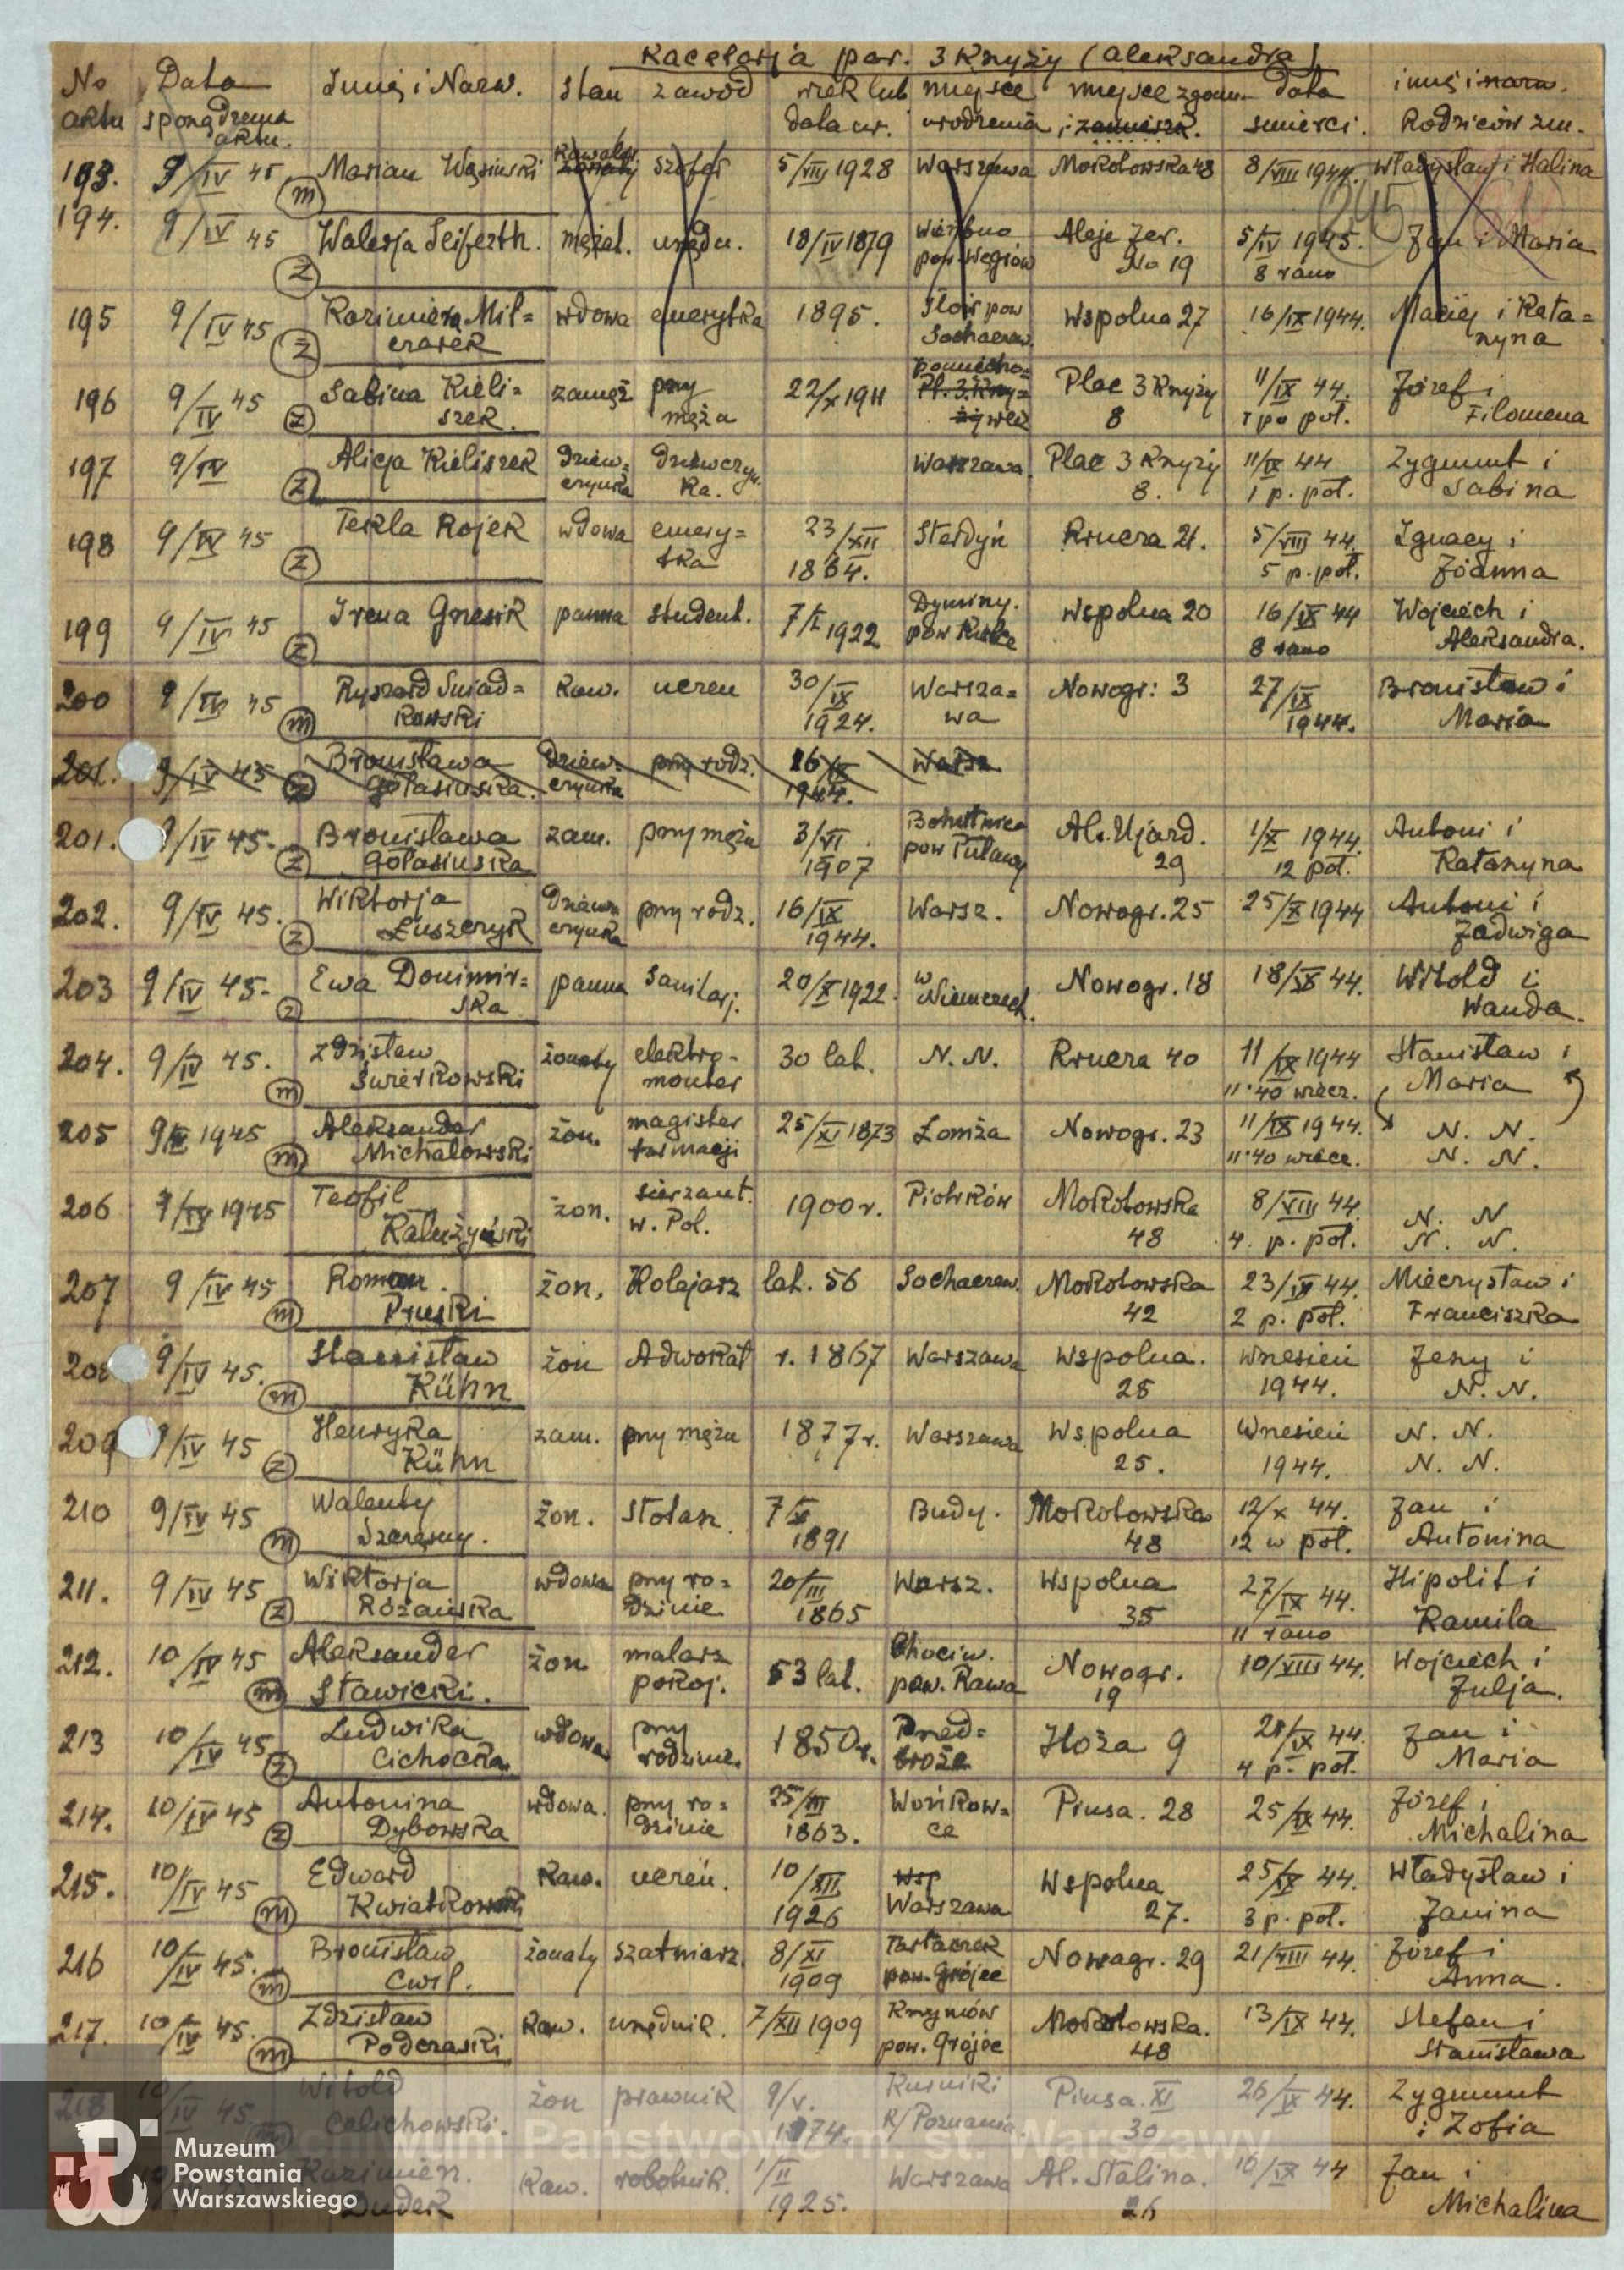 Kacelarja par. 3 Krzyży (Aleksandra)
No aktu Data sporządzenia aktu. Imię i Nazw. stan zawód wiek lub data ur. miejsce urodzenia miejsce zgonu i zamieszk. data śmierci. imię i nazw. Rodziców zm.
193. 9/IV 45 (m) Marian Wąsiński Kawaler żonaty szofer 5/VII 1928 Warszawa Mokotowska 48 8/VIII 1944. Władysław i Halina
194. 9/IV 45 (ż) Walerja Seiferth. mężat. urzędn. 18/IV 1879 Wierzbno pow. Węgrów Aleje Jer. No 19 5/IV 1945. 8 rano Jan i Maria
245
195 9/IV 45 (ż) Kazimiera Mil=czarek wdowa emerytka 1895. Iłów pow Sochaczew. Wspolna 27 16/IX 1944. Maciej i Kata=rzyna
196 9/IV 45 (ż) Sabina Kieli=szek. zamęż przy męża 22/X 1911 Pl. 3 Krzy=ży Plac 3 Krzyży 8 11/IX 44. 1 po poł. Józef i Filomena
197 9/IV (ż) Alicja Kieliszek dziew=czynka dziewczyn.ka. Warszawa Plac 3 Krzyży 8. 11/IX 44 1 p. poł. Zygmunt i Sabina
198 9/IV 45 (ż) Tekla Rojek wdowa emery=tka 23/XII 1864. Sterdyń Krucza 21. 5/VIII 44. 5 p. poł. Ignacy i Joanna
199 9/IV 45 (ż) Irena Gnesik panna student. 7/I 1922 Dyminy. pow Kielce Wspolna 20 16/IX 44 8 rano Wojciech i Aleksandra.
200 9/IV 45 (m) Ryszard Śniad=kowski kaw. uczeń 30/IX 1924. Warsza=wa Nowogr: 3 27/IX 1944. Bronisław i Maria
201. 9/IV 45 (ż) Bronisława Gołasińska. dziew=czynka przy rodz. 26/IX 1944. Warsz
201. 9/IV 45. (ż) Bronisława Gołasińska zam. przy mężu 3/VI 1907 Bohotnica pow Puławy Al. Ujazd. 29 1/X 1944. 12 poł. Antoni i Katarzyna
202. 9/IV 45. (ż) Wiktorja Łuszczyk dziew=czynka przy rodz. 16/IX 1944. Warsz. Nowogr. 25 25/X 1944 Antoni i Jadwiga
203 9/IV 45. (ż) Ewa Donimir=ska panna Sanitarj. 20/X 1922. w Niemczech. Nowogr. 18 18/IX 44. Witold i Wanda.
204. 9/IV 45. (m) Zdzisław Świerkowski żonaty elektro-monter 30 lat. N. N. Krucza 40 11/IX 1944 11·40 wiecz. Stanisław i Maria
205 9/IV 1945 (m) Aleksander Michałowski żon. magister farmacji 25/XI 1873 Łomża Nowogr. 23 11/IX 1944. 11·40 wiecz. N. N. N. N.
206 9/IV 1945 Teofil Kałużyński żon. sierżant. w. Pol. 1900 r. Piotrków Mokotowska 48 8/VIII 44. 4. p. poł. N. N N. N.
207 9/IV 45 (m) Roman. Pruski żon, Kolejarz lat. 56 Sochaczew. Mokotowska 42 23/IX 44. 2 p. poł. Mieczysław i Franciszka
208 9/IV 45. (m) Stanisław Kühn żon Adwokat r. 1867 Warszawa Wspolna. 25 Wrzesień 1944. Jerzy i N. N.
209 9/IV 45 (ż) Henryka Kühn zam. przy mężu 1877 r. Warszawa Wspolna 25. Wrzesień 1944. N. N. N. N.
210 9/IV 45 (m) Walenty Szczęsny. żon. Stolarz. 7/X 1891 Budy. Mokotowska 48 12/X 44. 12 w poł. Jan i Antonina
211. 9/IV 45 (ż) Wiktorja Różańska wdowa przy ro=dzinie 20/III 1865 Warsz. Wspolna 35 27/IX 44. 11 rano Hipolit i Kamila
212. 10/IV 45 (m) Aleksander Stawicki. żon malarz pokoj. 53 lat. Chociw. pow. Rawa Nowogr. 19 10/VIII 44. Wojciech i Julja.
213 10/IV 45 (ż) Ludwika Cichocka wdowa przy rodzinie. 1850 r. Przed=borze Hoża 9 28/IX 44. 4 p. poł. Jan i Maria
214. 10/IV 45 (ż) Antonina Dybowska wdowa. przy ro=dzinie 25/III 1863. Wońkow=ce Piusa. 28 25/IX 44. Józef i Michalina
215. 10/IV 45 (m) Edward Kwiatkowski kaw. uczeń. 10/XII 1926 Wsp Warszawa Wspolna 27. 25/IX 44. 3 p. poł. Władysław i Janina
216 10/IV 45. (m) Bronisław Cwil. żonaty szatniarz. 8/XI 1909 Tartaczek pow. Grójec Nowogr. 29 21/VIII 44. Józef i Anna.
217. 10/IV 45. (m) Zdzisław Podczaski kaw. urzędnik. 7/XII 1909 pow. Grójec Mokotowska. 48 13/IX 44. Stefan i Stanisława
218 10/IV 45. (m) Witold Celichowski. żon prawnik 9/V. 1874. Kurniki k/Poznania. Piusa XI 30 26/IX 44. Zygmunt i Zofia
Kazimierz. Dudek kaw. robotnik. 1/II 1925. Warszawa Al. Stalina. 26 10/IX 44 Jan i Michalina
Muzeum
Powstania
Warszawskiego
Państwowe m. st. Warszawy